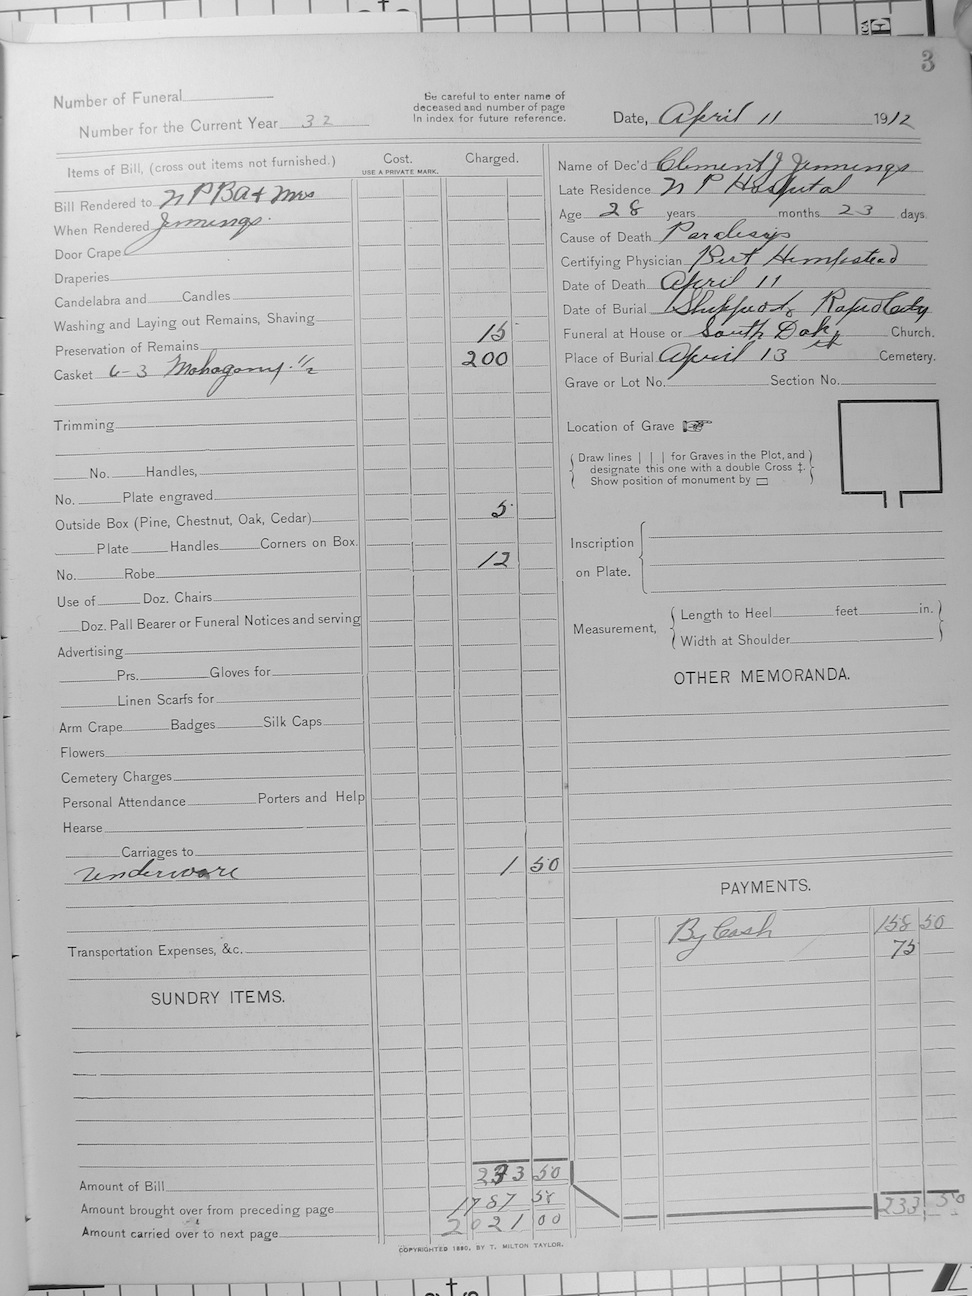 3
Number of Funeral
Number for the Current Year 32
Be careful to enter name of
deceased and number of page
In index for future reference.
Date, April 11 1912
Items of Bill, (cross out items not furnished.)
Cost.
USE A PRIVATE MARK.
Charged.
Bill Rendered to N P BA & Mrs
When Rendered Jennings.
Door Crape
Draperies
Candelabra and Candles
Washing and Laying out Remains, Shaving
Preservation of Remains 15
Casket 6-3 Mahogany 1/2 200
Trimming
No. Handles,
No. Plate engraved
Outside Box (Pine, Chestnut, Oak, Cedar) 5
Plate Handles Corners on Box.
No. Robe 12
Use of Doz. Chairs
Doz. Pall Bearer or Funeral Notices and serving
Advertising
Prs. Gloves for
Linen Scarfs for
Arm Crape Badges Silk Caps
Flowers
Cemetery Charges
Personal Attendance Porters and Help
Hearse
Carriages to
Underware 1 50
Transportation Expenses, &c.
SUNDRY ITEMS.
Amount of Bill 233 50
Amount brought over from preceding page 1787 58
Amount carried over to next page 2021 00
Name of Dec'd Clement J Jennings
Late Residence N P Hospital
Age 28 years months 23 days
Cause of Death Paralesys
Certifying Physician Burt Hempstead
Date of Death April 11
Date of Burial Shipped to Rapid City
Funeral at House or South Dak. Church.
Place of Burial April 13th Cemetery.
Grave or Lot No. Section No.
Location of Grave
Draw lines | | | for Graves in the Plot, and
designate this one with a double Cross ‡.
Show position of monument by ▭
Inscription
on Plate.
Measurement,
Length to Heel feet in.
Width at Shoulder
OTHER MEMORANDA.
PAYMENTS.
By Cash 158 50
75
233 50
COPYRIGHTED 1880, BY T. MILTON TAYLOR.